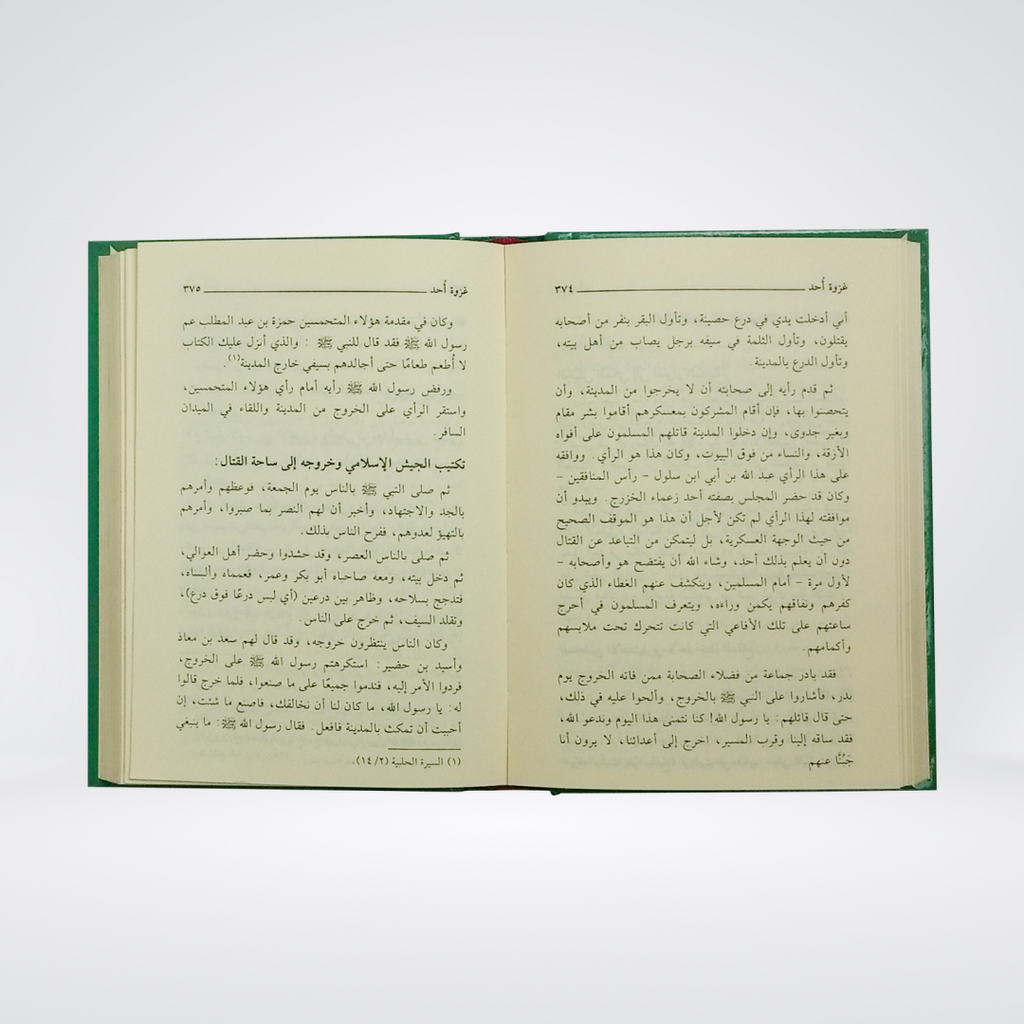 غزوة أُحد ٣٧٤
أني أدخلت يدي في درع حصينة، وتأول البقر بنفر من أصحابه
يقتلون، وتأول الثلمة في سيفه برجل يصاب من أهل بيته،
وتأول الدرع بالمدينة.
ثم قدم رأيه إلى صحابته أن لا يخرجوا من المدينة، وأن
يتحصنوا بها، فإن أقام المشركون بمعسكرهم أقاموا بشر مقام
وبغير جدوى، وإن دخلوا المدينة قاتلهم المسلمون على أفواه
الأزقة، والنساء من فوق البيوت، وكان هذا هو الرأي. ووافقه
على هذا الرأي عبد الله بن أبي ابن سلول – رأس المنافقين –
وكان قد حضر المجلس بصفته أحد زعماء الخزرج. ويبدو أن
موافقته لهذا الرأي لم تكن لأجل أن هذا هو الموقف الصحيح
من حيث الوجهة العسكرية، بل ليتمكن من التباعد عن القتال
دون أن يعلم بذلك أحد، وشاء الله أن يفتضح هو وأصحابه –
لأول مرة – أمام المسلمين، وينكشف عنهم الغطاء الذي كان
كفرهم ونفاقهم يكمن وراءه، ويتعرف المسلمون في أحرج
ساعتهم على تلك الأفاعي التي كانت تتحرك تحت ملابسهم
وأكمامهم.
فقد بادر جماعة من فضلاء الصحابة ممن فاته الخروج يوم
بدر، فأشاروا على النبي ﷺ بالخروج، وألحوا عليه في ذلك،
حتى قال قائلهم: يا رسول الله! كنا نتمنى هذا اليوم وندعو الله،
فقد ساقه إلينا وقرب المسير، اخرج إلى أعدائنا، لا يرون أنا
جَبُنَّا عنهم
غزوة أُحد ٣٧٥
وكان في مقدمة هؤلاء المتحمسين حمزة بن عبد المطلب عم
رسول الله ﷺ فقد قال للنبي ﷺ : والذي أنزل عليك الكتاب
لا أُطعم طعامًا حتى أجالدهم بسيفي خارج المدينة(١).
ورفض رسول الله ﷺ رأيه أمام رأي هؤلاء المتحمسين،
واستقر الرأي على الخروج من المدينة واللقاء في الميدان
السافر.
تكتيب الجيش الإسلامي وخروجه إلى ساحة القتال:
ثم صلى النبي ﷺ بالناس يوم الجمعة، فوعظهم وأمرهم
بالجد والاجتهاد، وأخبر أن لهم النصر بما صبروا، وأمرهم
بالتهيؤ لعدوهم، ففرح الناس بذلك.
ثم صلى بالناس العصر، وقد حشدوا وحضر أهل العوالي،
ثم دخل بيته، ومعه صاحباه أبو بكر وعمر، فعمماه وألبساه،
فتدجج بسلاحه، وظاهر بين درعين (أي لبس درعًا فوق درع)،
وتقلد السيف، ثم خرج على الناس.
وكان الناس ينتظرون خروجه، وقد قال لهم سعد بن معاذ
وأسيد بن حضير: استكرهتم رسول الله ﷺ على الخروج،
فردوا الأمر إليه، فندموا جميعًا على ما صنعوا، فلما خرج قالوا
له: يا رسول الله، ما كان لنا أن نخالفك، فاصنع ما شئت، إن
أحببت أن تمكث بالمدينة فافعل. فقال رسول الله ﷺ: ما ينبغي
(١) السيرة الحلبية (٢/ ١٤).